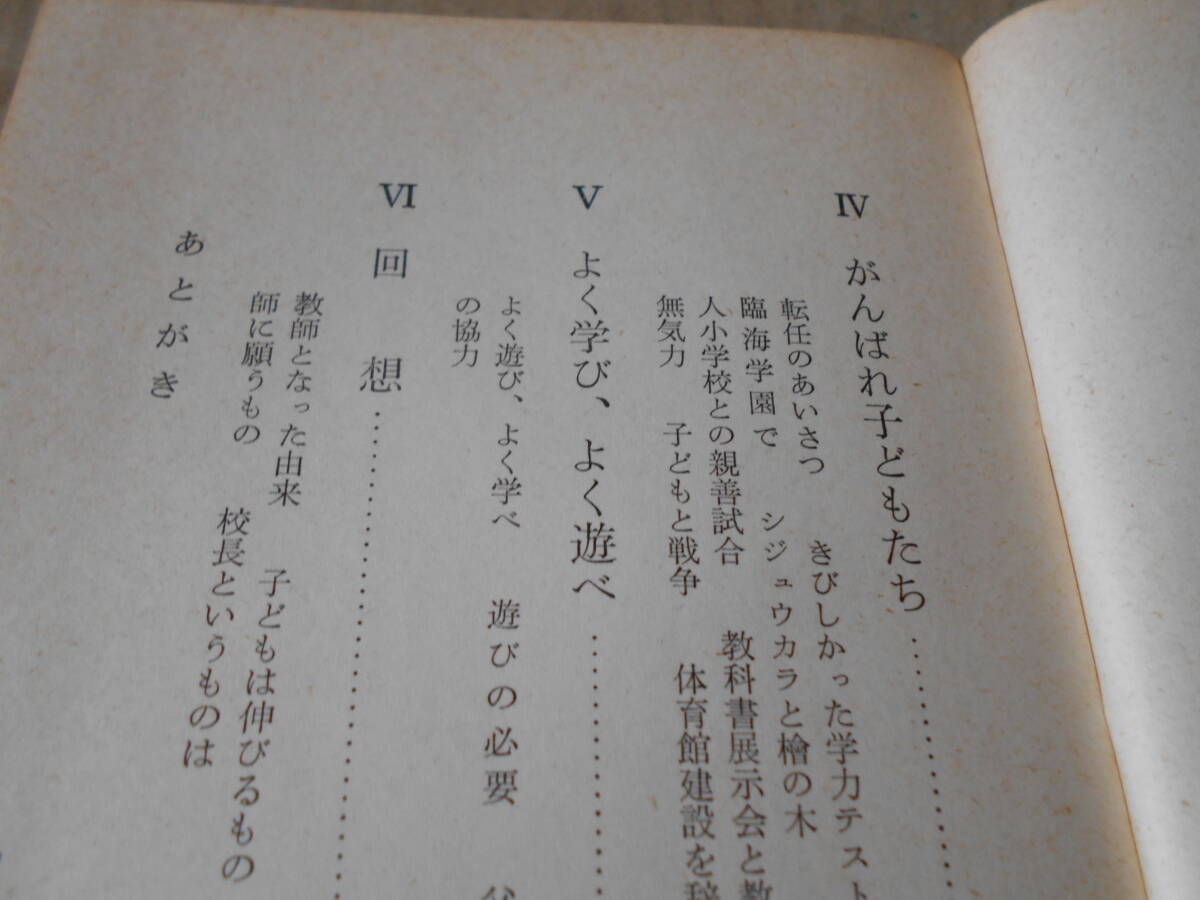 Ⅳ がんばれ子どもたち…………
転任のあいさつ きびしかった学力テスト
臨海学園で シジュウカラと檜の木
人小学校との親善試合 教科書展示会と教
無気力 子どもと戦争 体育館建設を
Ⅴ よく学び、よく遊べ…………
よく遊び、よく学べ 遊びの必要
の協力
Ⅵ 回想…………
教師となった由来 子どもは伸びるもの
師に願うもの 校長というものは
あとがき